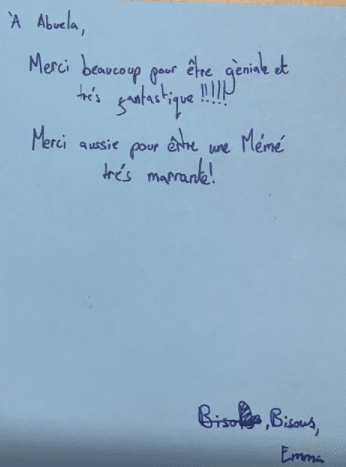 À Abuela,
Merci beaucoup pour être gèniale et
trés fantastique !!!!!
Merci aussie pour être une Mémé
trés marrante!
Bisous, Bisous,
Emma